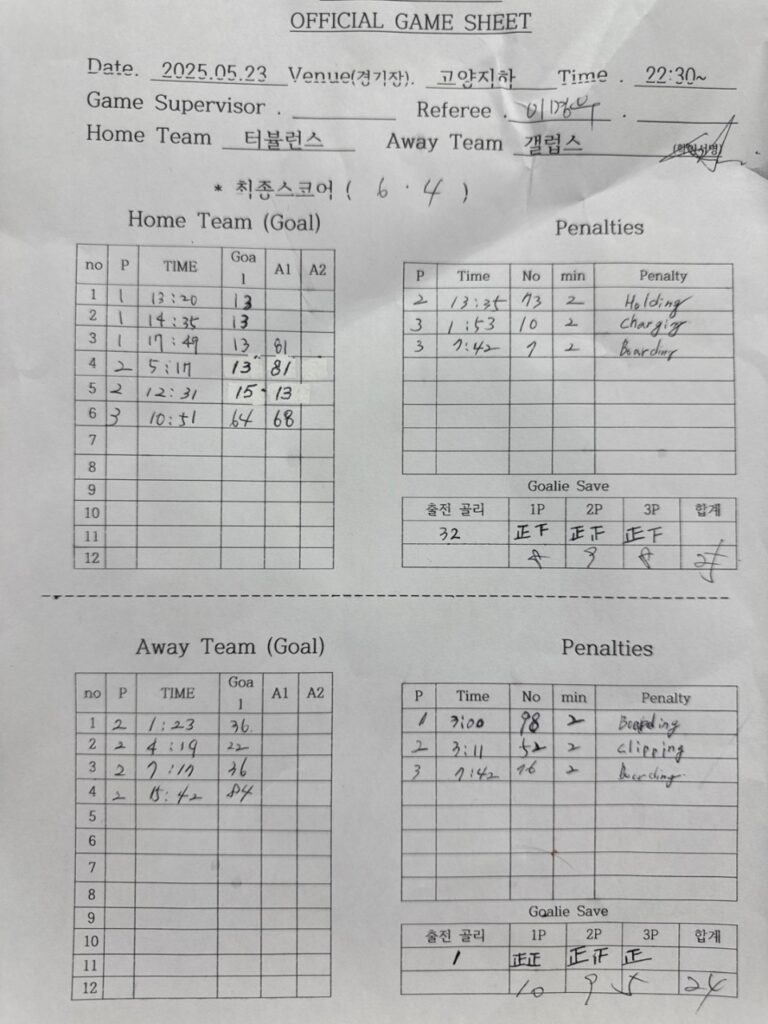 OFFICIAL GAME SHEET
Date. 2025.05.23 Venue(경기장). 고양지하 Time . 22:30~
Game Supervisor . Referee .
Home Team 터뷸런스 Away Team 갤럽스
* 최종스코어 ( 6 · 4 )
Home Team (Goal)
no P TIME Goal A1 A2
1 1 13:20 13
2 1 14:35 13
3 1 17:49 13 81
4 2 5:17 13 81
5 2 12:31 15 13
6 3 10:51 64 68
7
8
9
10
11
12
Penalties
P Time No min Penalty
2 13:35 73 2 Holding
3 1:53 10 2 Charging
3 7:42 7 2 Boarding
Goalie Save
출전 골리 1P 2P 3P 합계
32 正下 正正 正下
8 9 8
Away Team (Goal)
no P TIME Goal A1 A2
1 2 1:23 36
2 2 4:19 22
3 2 7:17 36
4 2 15:42 84
5
6
7
8
9
10
11
12
Penalties
P Time No min Penalty
1 3:00 98 2 Boarding
2 3:11 52 2 Clipping
3 7:42 76 2 Boarding
Goalie Save
출전 골리 1P 2P 3P 합계
1 正正 正正 正
10 9 5 24